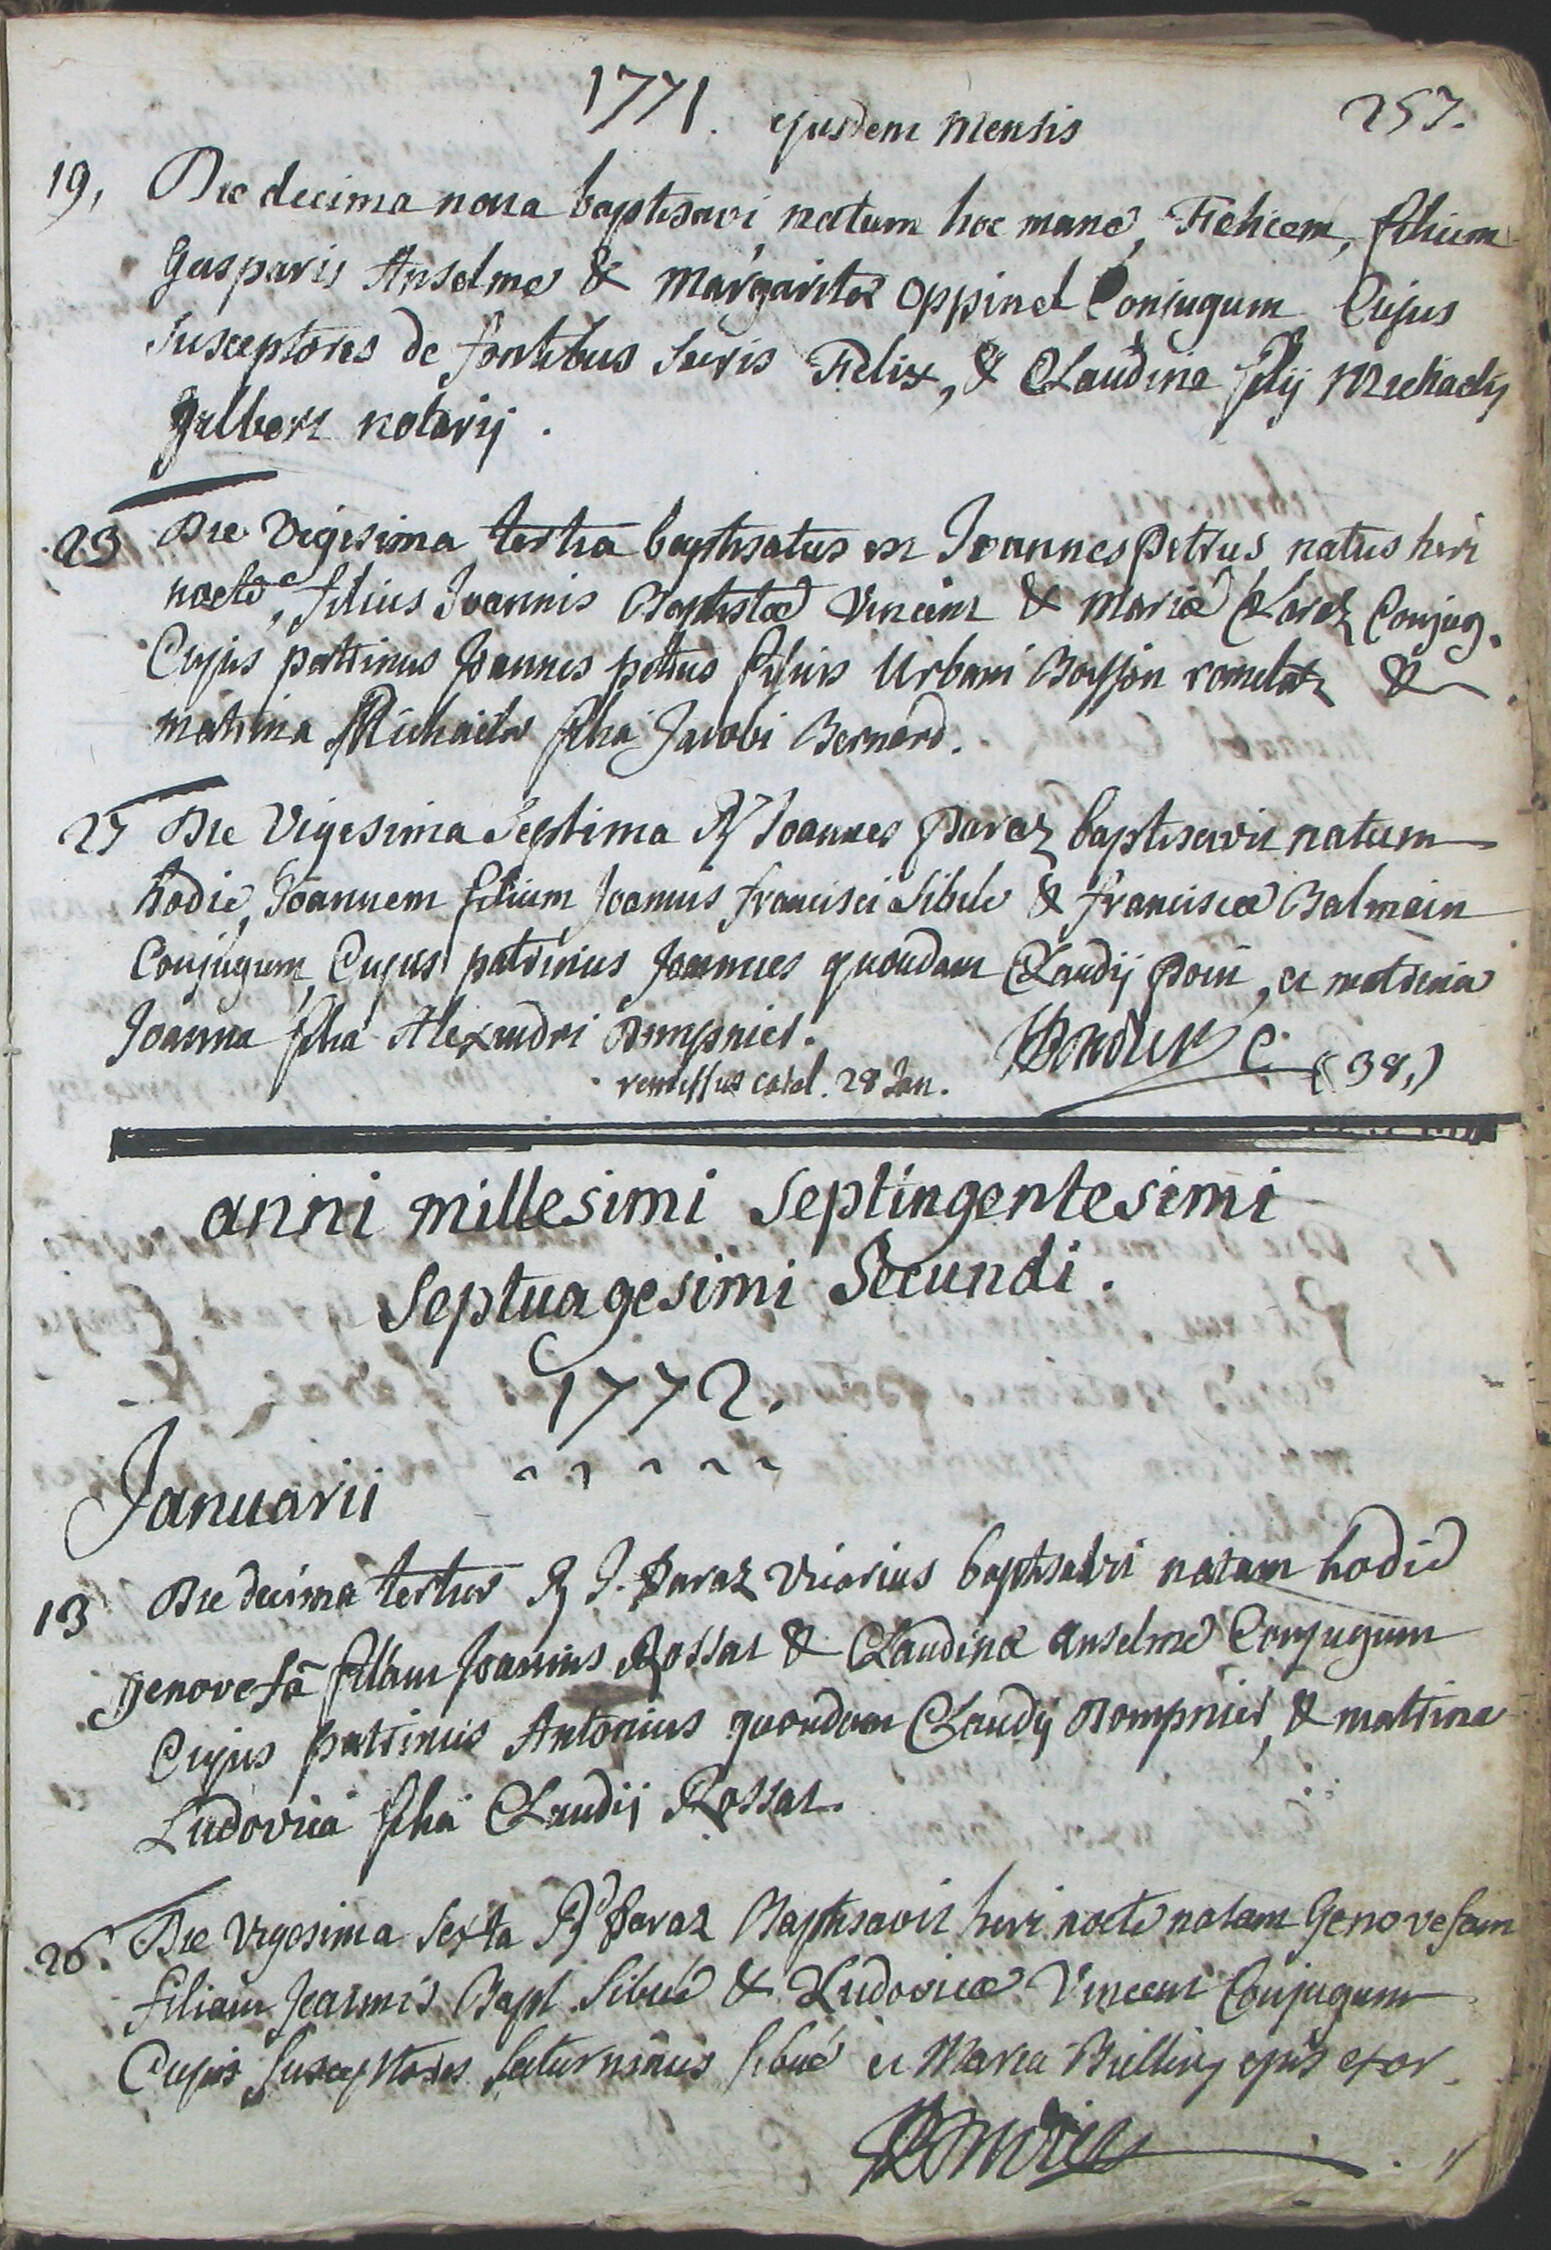 1771. ejusdem mensis 257.
19, Die decima nona baptisavi natum hoc mane, Felicem, filium
Gasparis Anselme & Margaritæ Oppinel Conjugum Cujus
Susceptores de fontibus Sacris Felix, & Claudina filij Michaelis
Gilbert notarij.
23 Die Vigesima tertia baptisatus est Joannes Petrus, natus heri
nocte, filius Joannis Baptistæ Vincent & Mariæ Claraz Conjug.
Cujus patrinus Joannes petrus filius Urbani Bosson &
matrina Michaela filia Jacobi Bernard.
27 Die Vigesima Septima Rd Joannes Paraz baptisavit natum
hodie, Joannem filium Joannis francisci Sibué & franciscæ Balmain
Conjugum, Cujus patrinus Joannes quondam Claudij Doin, et matrina
Joanna filia Alexandri Dompnier.
remissus catal. 28 Jan. C. (38,)
anni millesimi Septingentesimi
Septuagesimi Secundi.
1772.
Januarii
13 Die decima tertia Rd J. Paraz Vicarius baptisavit natam hodie
Genovefã filiam Joannis Rossat & Claudinæ Anselme Conjugum
Cujus patrinus Antonius quondam Claudij Dompnier, & matrina
Ludovica filia Claudij Rossat.
26. Die Vigesima Sexta Rd Paraz Baptisavit heri nocte natam Genovefam
filiam Joannis Bapt. Sibué & Ludovicæ Vincent Conjugum
Cujus Susceptores Saturninus Sibué et Maria ejus uxor.